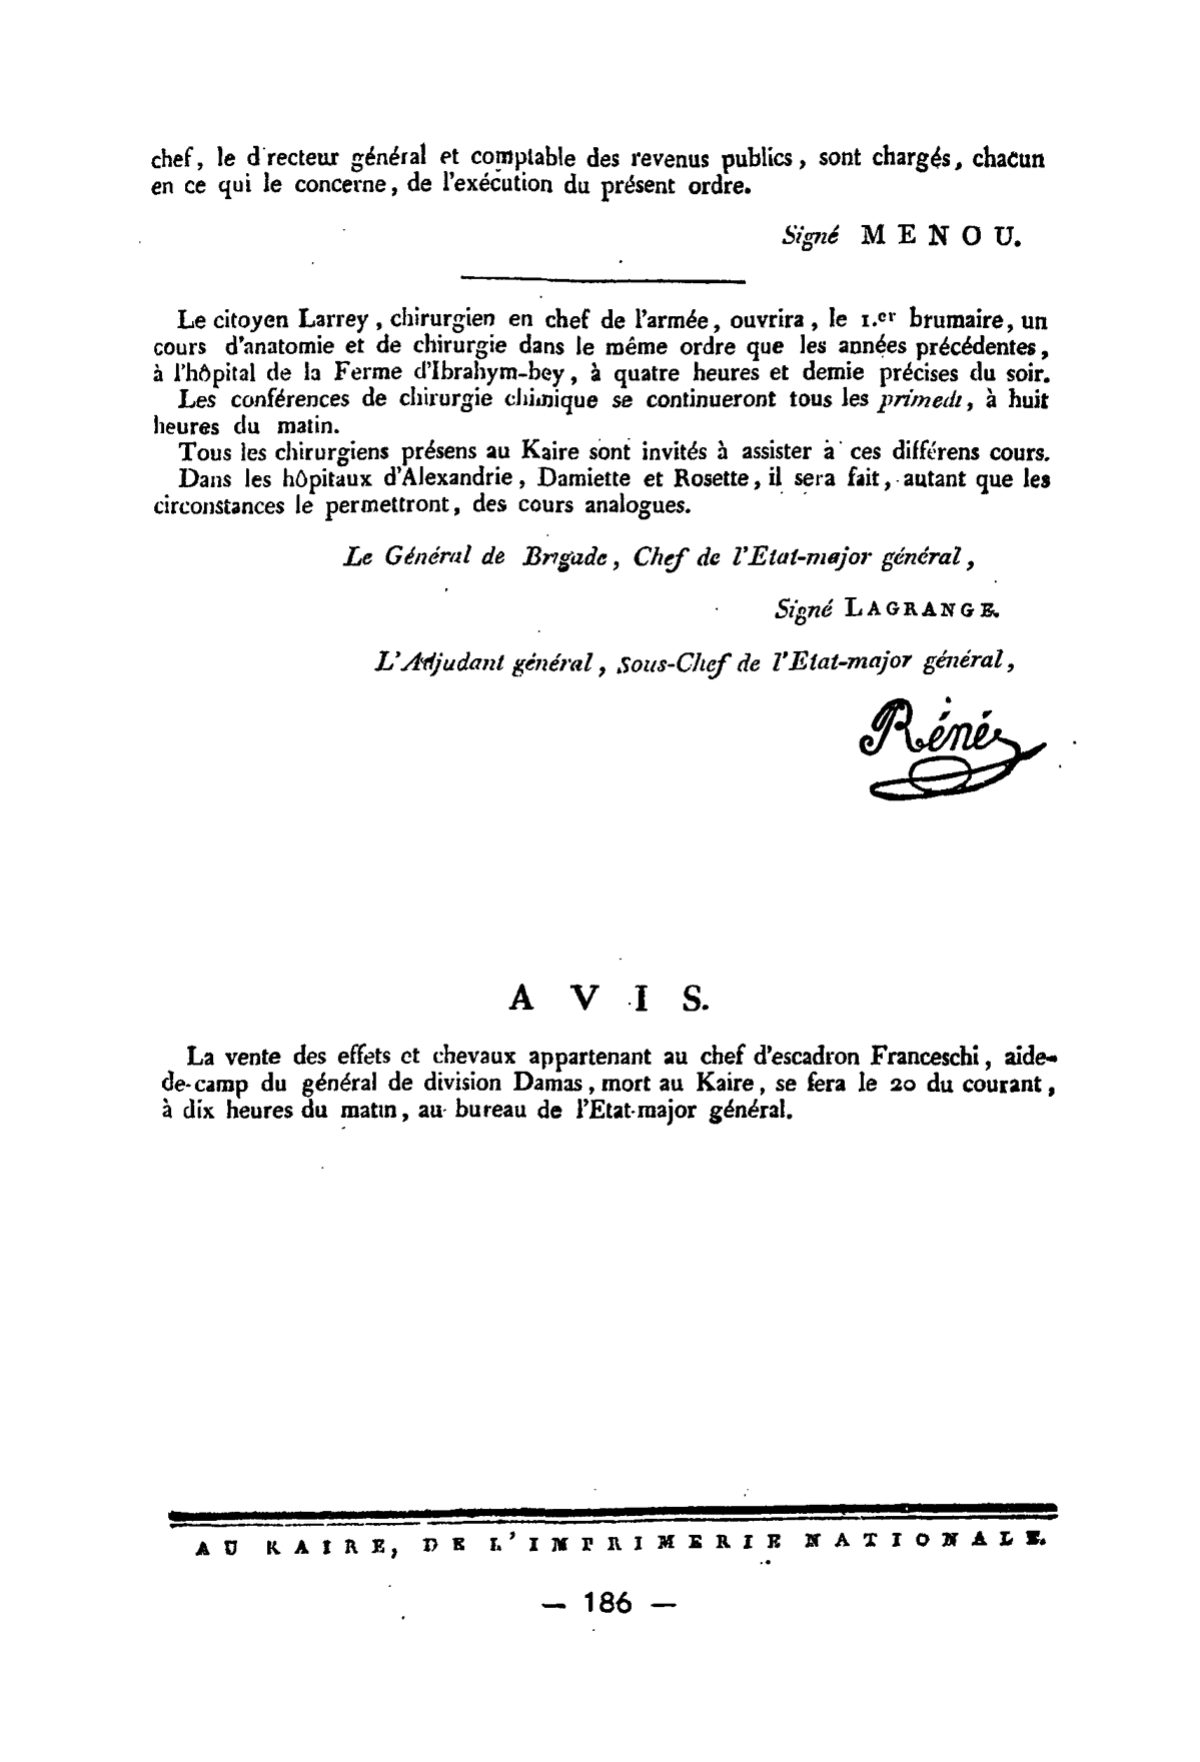 chef, le directeur général et comptable des revenus publics, sont chargés, chacun
en ce qui le concerne, de l'exécution du présent ordre.
Signé MENOU.
Le citoyen Larrey, chirurgien en chef de l'armée, ouvrira, le 1.er brumaire, un
cours d'anatomie et de chirurgie dans le même ordre que les années précédentes,
à l'hôpital de la Ferme d'Ibrahym-bey, à quatre heures et demie précises du soir.
Les conférences de chirurgie clinique se continueront tous les primedi, à huit
heures du matin.
Tous les chirurgiens présens au Kaire sont invités à assister à ces différens cours.
Dans les hôpitaux d'Alexandrie, Damiette et Rosette, il sera fait, autant que les
circonstances le permettront, des cours analogues.
Le Général de Brigade, Chef de l'Etat-major général,
Signé LAGRANGE.
L'Adjudant général, sous-Chef de l'Etat-major général,
Réné
AVIS.
La vente des effets et chevaux appartenant au chef d'escadron Franceschi, aide-
de-camp du général de division Damas, mort au Kaire, se fera le 20 du courant,
à dix heures du matin, au bureau de l'Etat-major général.
AU KAIRE, DE L'IMPRIMERIE NATIONALE.
— 186 —